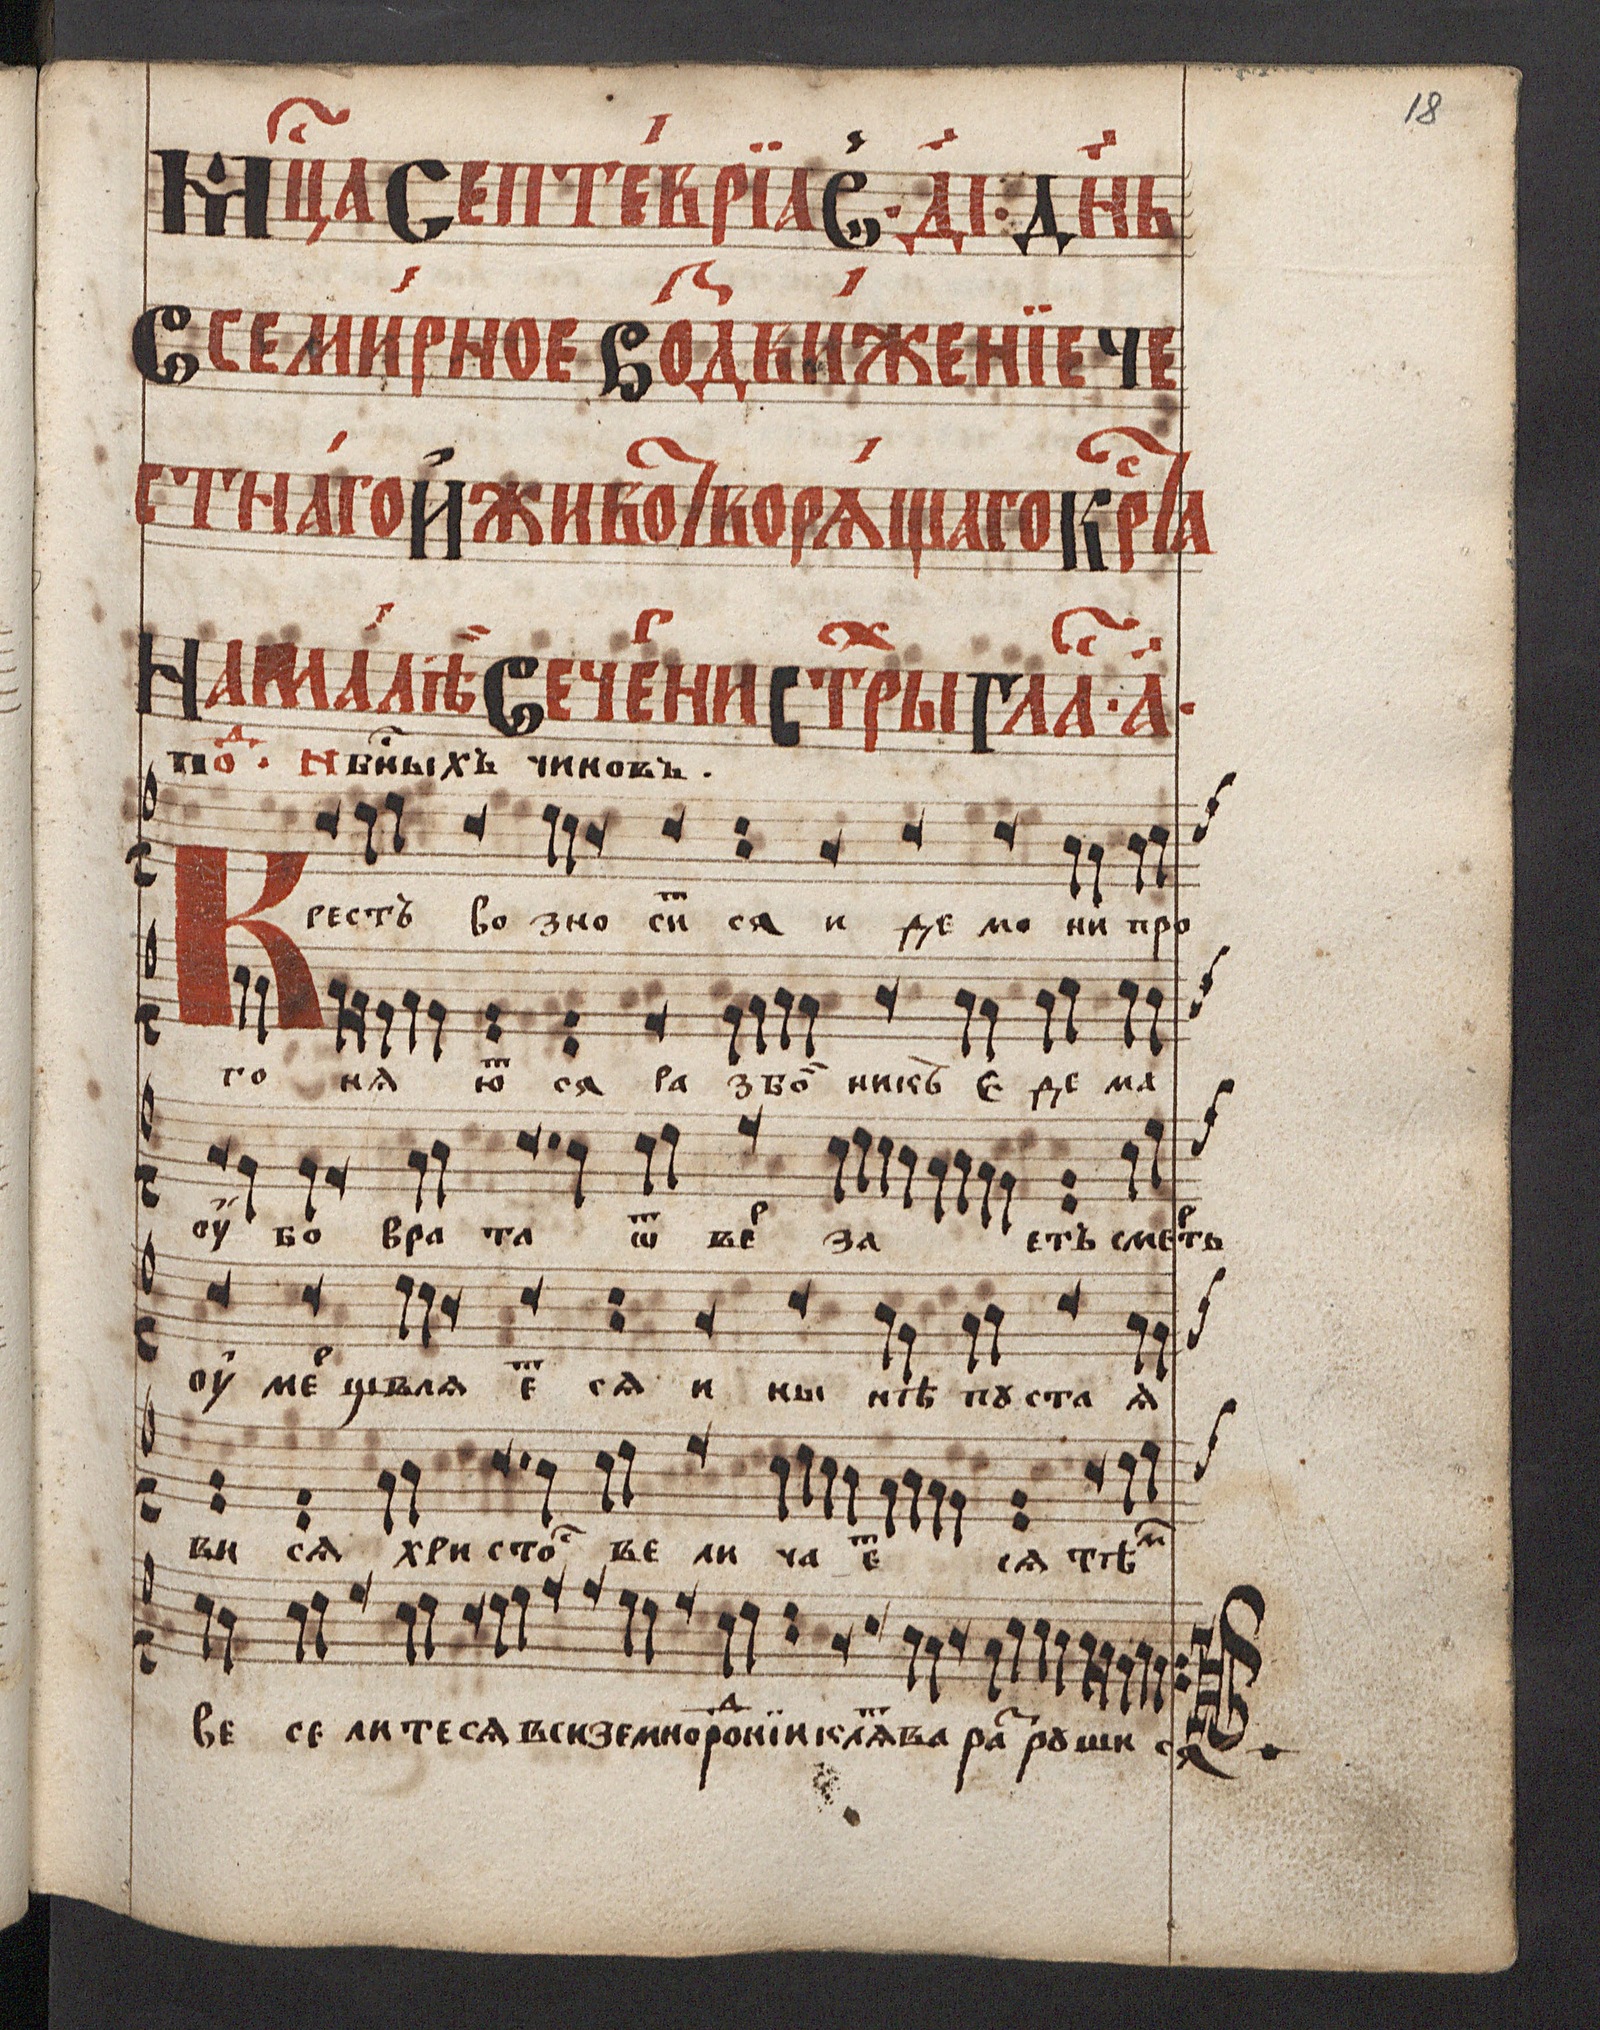 18
Мⷭ҇ца Септе́врїа Є҆ ·д҃і· Дн҃ь
Всеми́рное Воⷥдви́женїе че
стна́го И҆ живоⷮворѧ́щаго Крⷭ҇та
На ма́лѣ Вече́рни Стⷯры Глаⷭ҇ ·а҃·
поⷣ · Нбⷭ҇ныхъ чиновъ ·
Крестъ во зно сиⷮ сѧ и де мо ни про
го нѧ юⷮ сѧ ра збоⷨ никъ Є де ма
оу҆ бо вра та ѿ веⷬ за етъ смеⷬть
оу҆ меⷬ щвлѧ еⷮ сѧ и ны нѣ пꙋста ѧ
ви сѧ христоⷭ ве ли ча еⷮ сѧ тѣⷨ
ве се ли те сѧ вси земнороⷣнїи клѧⷮва раⷥ рꙋши сѧ